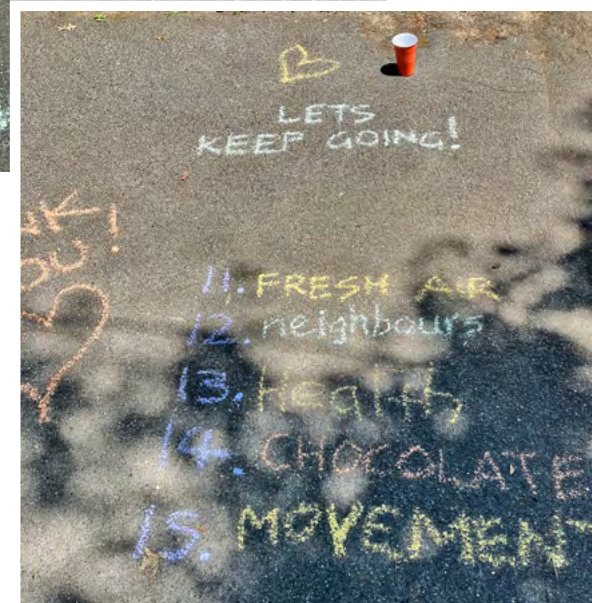 LETS
KEEP GOING!
11. FRESH AIR
12. neighbours
13. Health
14. CHOCOLATE
15. MOVEMENT